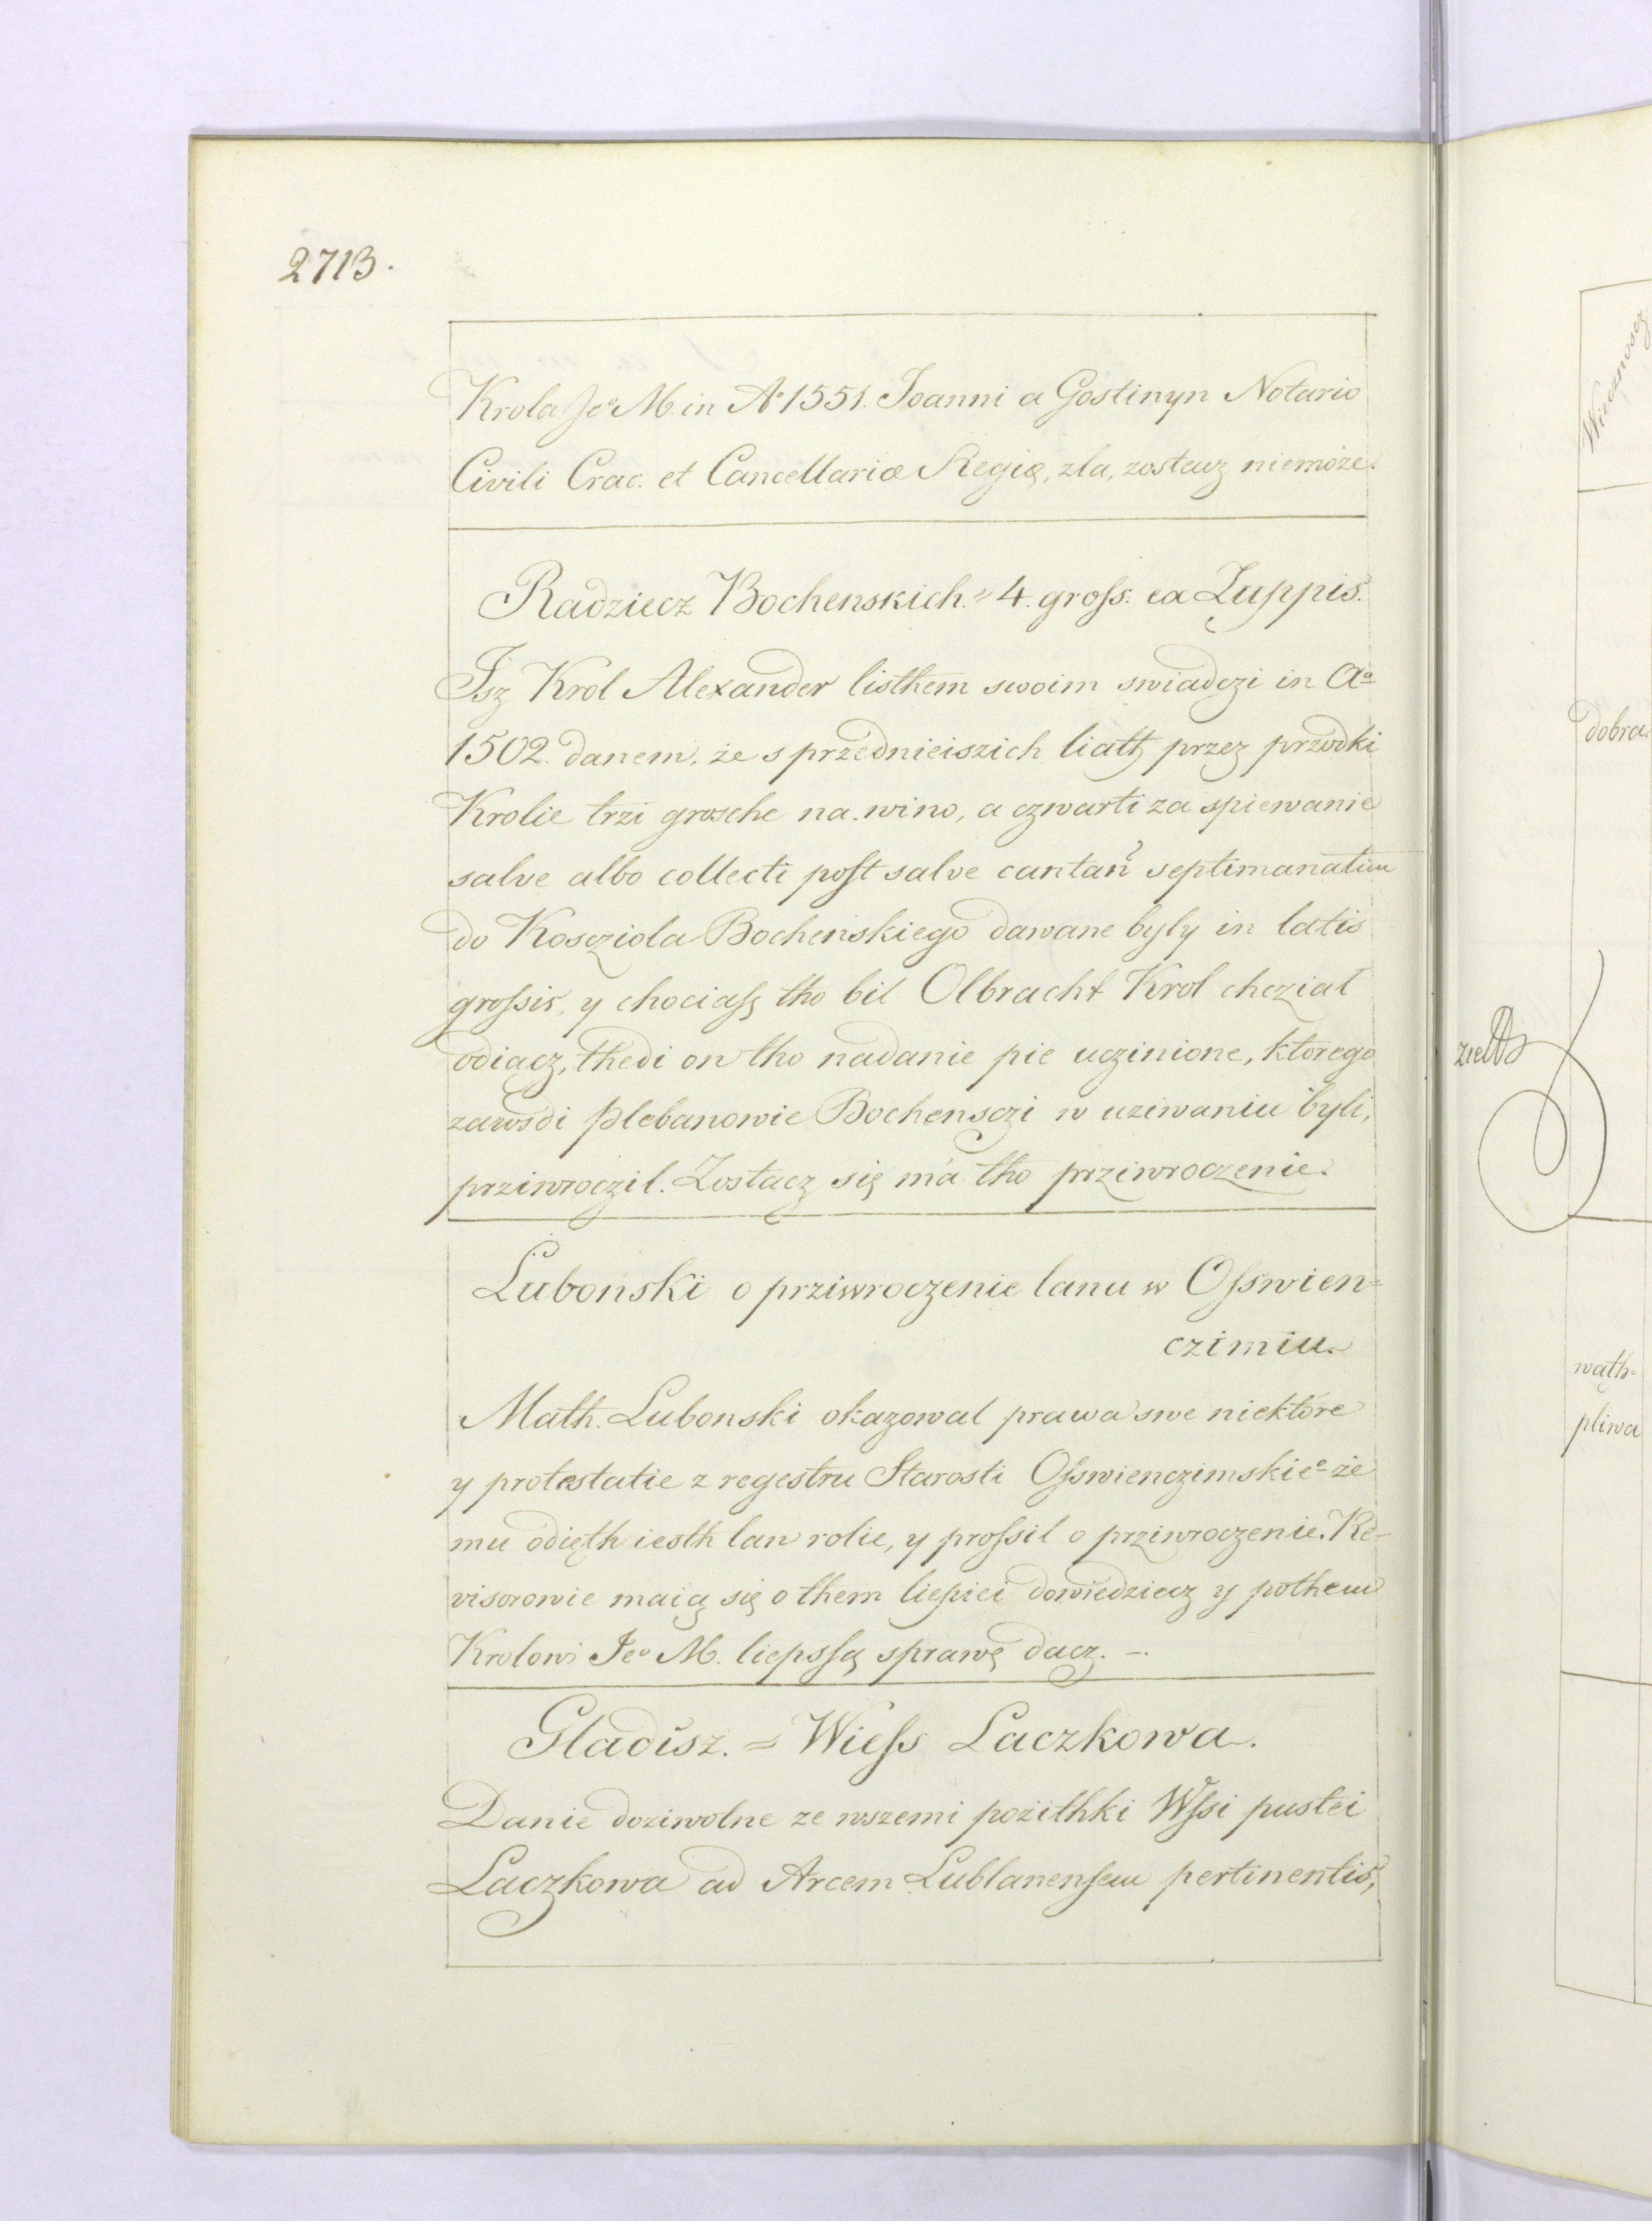 2713.
Krola Jeº M. in Aº 1551. Joanni a Gostinyn Notario
Civili Crac. et Cancellariæ Regię, zla, zostacz niemoże.
Radziecz Bochenskich. = 4. groſs. ex Zuppis.
Jsz Krol Alexander listhem swoim swiadczi in Aº
1502. danem, że s przednieiszich liath przez przodki
Krolie trzi grosche na wino, a czwarti za spiewanie
salve albo collecti poſt salve cantan septimanatim
do Koscziola Bochenskiego dawane byly in latis
groſsis, y chociaſz tho bil Olbracht Krol chcział
odiącz, thedi on tho nadanie pie uczinione, ktorego
zawsdi plebanowie Bochensczi w uziwaniu byli,
prziwroczil. Zostacz się ma tho prziwroczenie.
Lubonski o przwiroczenie lanu w Oſswien=
czimiu.
Math. Lubonski okazowal prawa swe niektóre
y protestatie z regestru Starosti Oſswienczimskieº że
mu odięth iesth lan rolie, y proſsil o przwiroczenie. Re-
visorowie maią się o them liepiei dowiedziecz y pothem
Krolowi Jeº M. liepsſą sprawę dacz. -.
Gladisz. = Wieſs Laczkowa.
Danie doziwolne ze wszemi pożithki Wſsi pustei
Laczkowa ad Arcem Lublanenſem pertinentis,
Wiecznoscz
dobra.
zieth
wąth=
pliwa